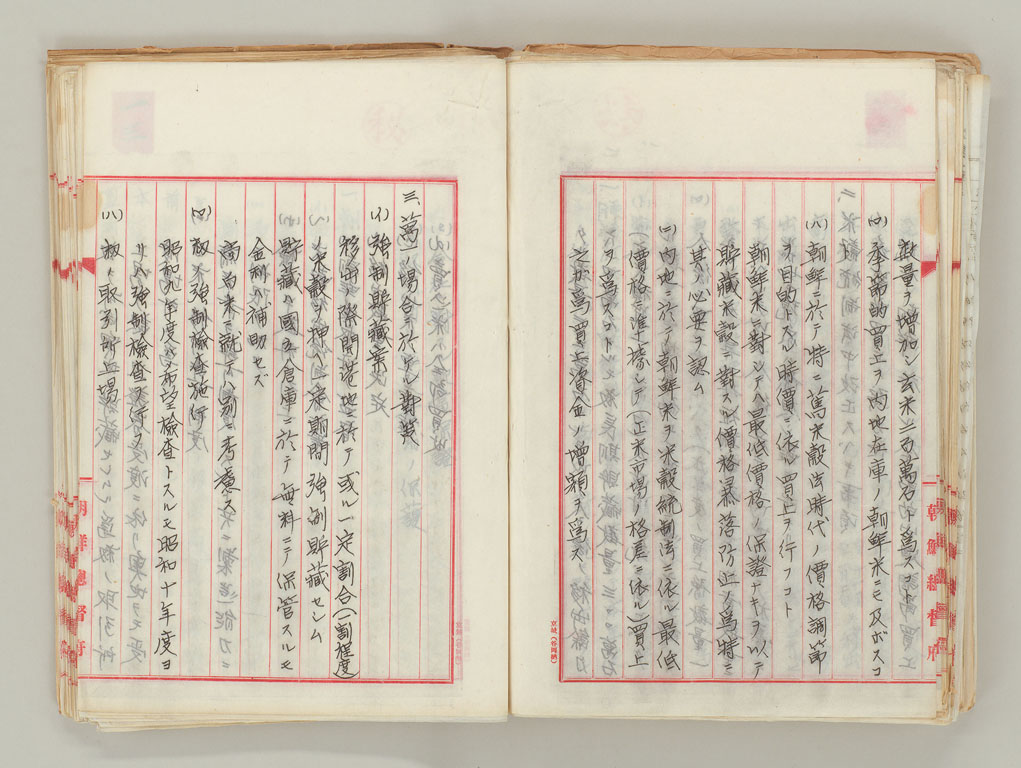 数量ヲ増加シ玄米三百萬石ト為スコト
(ロ) 季節的買上ヲ内地在庫ノ朝鮮米ニモ及ボスコト
(ハ) 朝鮮ニ於テ特ニ舊米穀法時代ノ價格調節
ヲ目的トスル時價ニ依ル買上ヲ行フコト
朝鮮米ニ對シテハ最低價格ノ保證ナキヲ以テ
貯藏米穀ニ對スル價格暴落防止ノ為特ニ
其ノ必要ヲ認ム
(ニ) 内地ニ於テ朝鮮米ヲ米穀統制法ニ依ル最低
價格ニ準據シテ(正米市場ノ格差ニ依ル)買上
ヲ為スコト
之ガ為買上資金ノ増額ヲ為ス
三、萬一ノ場合ニ於ケル對策
(イ) 強制貯藏案
移出ノ際開港地ニ於テ或ル一定割合(一割程度)
ノ米穀ヲ押ヘ一定期間強制貯藏セシム
貯藏ハ國立倉庫ニ於テ無料ニテ保管スルモ
金利ハ補助セズ
尚白米ニ就テハ別ニ考慮ス
(ロ) 籾米強制檢査施行
昭和九年度ハ希望檢査トスルモ昭和十年度ヨ
リハ強制檢査ヲ行フ
(ハ) 籾ノ取引所上場
朝鮮總督府
朝鮮總督府